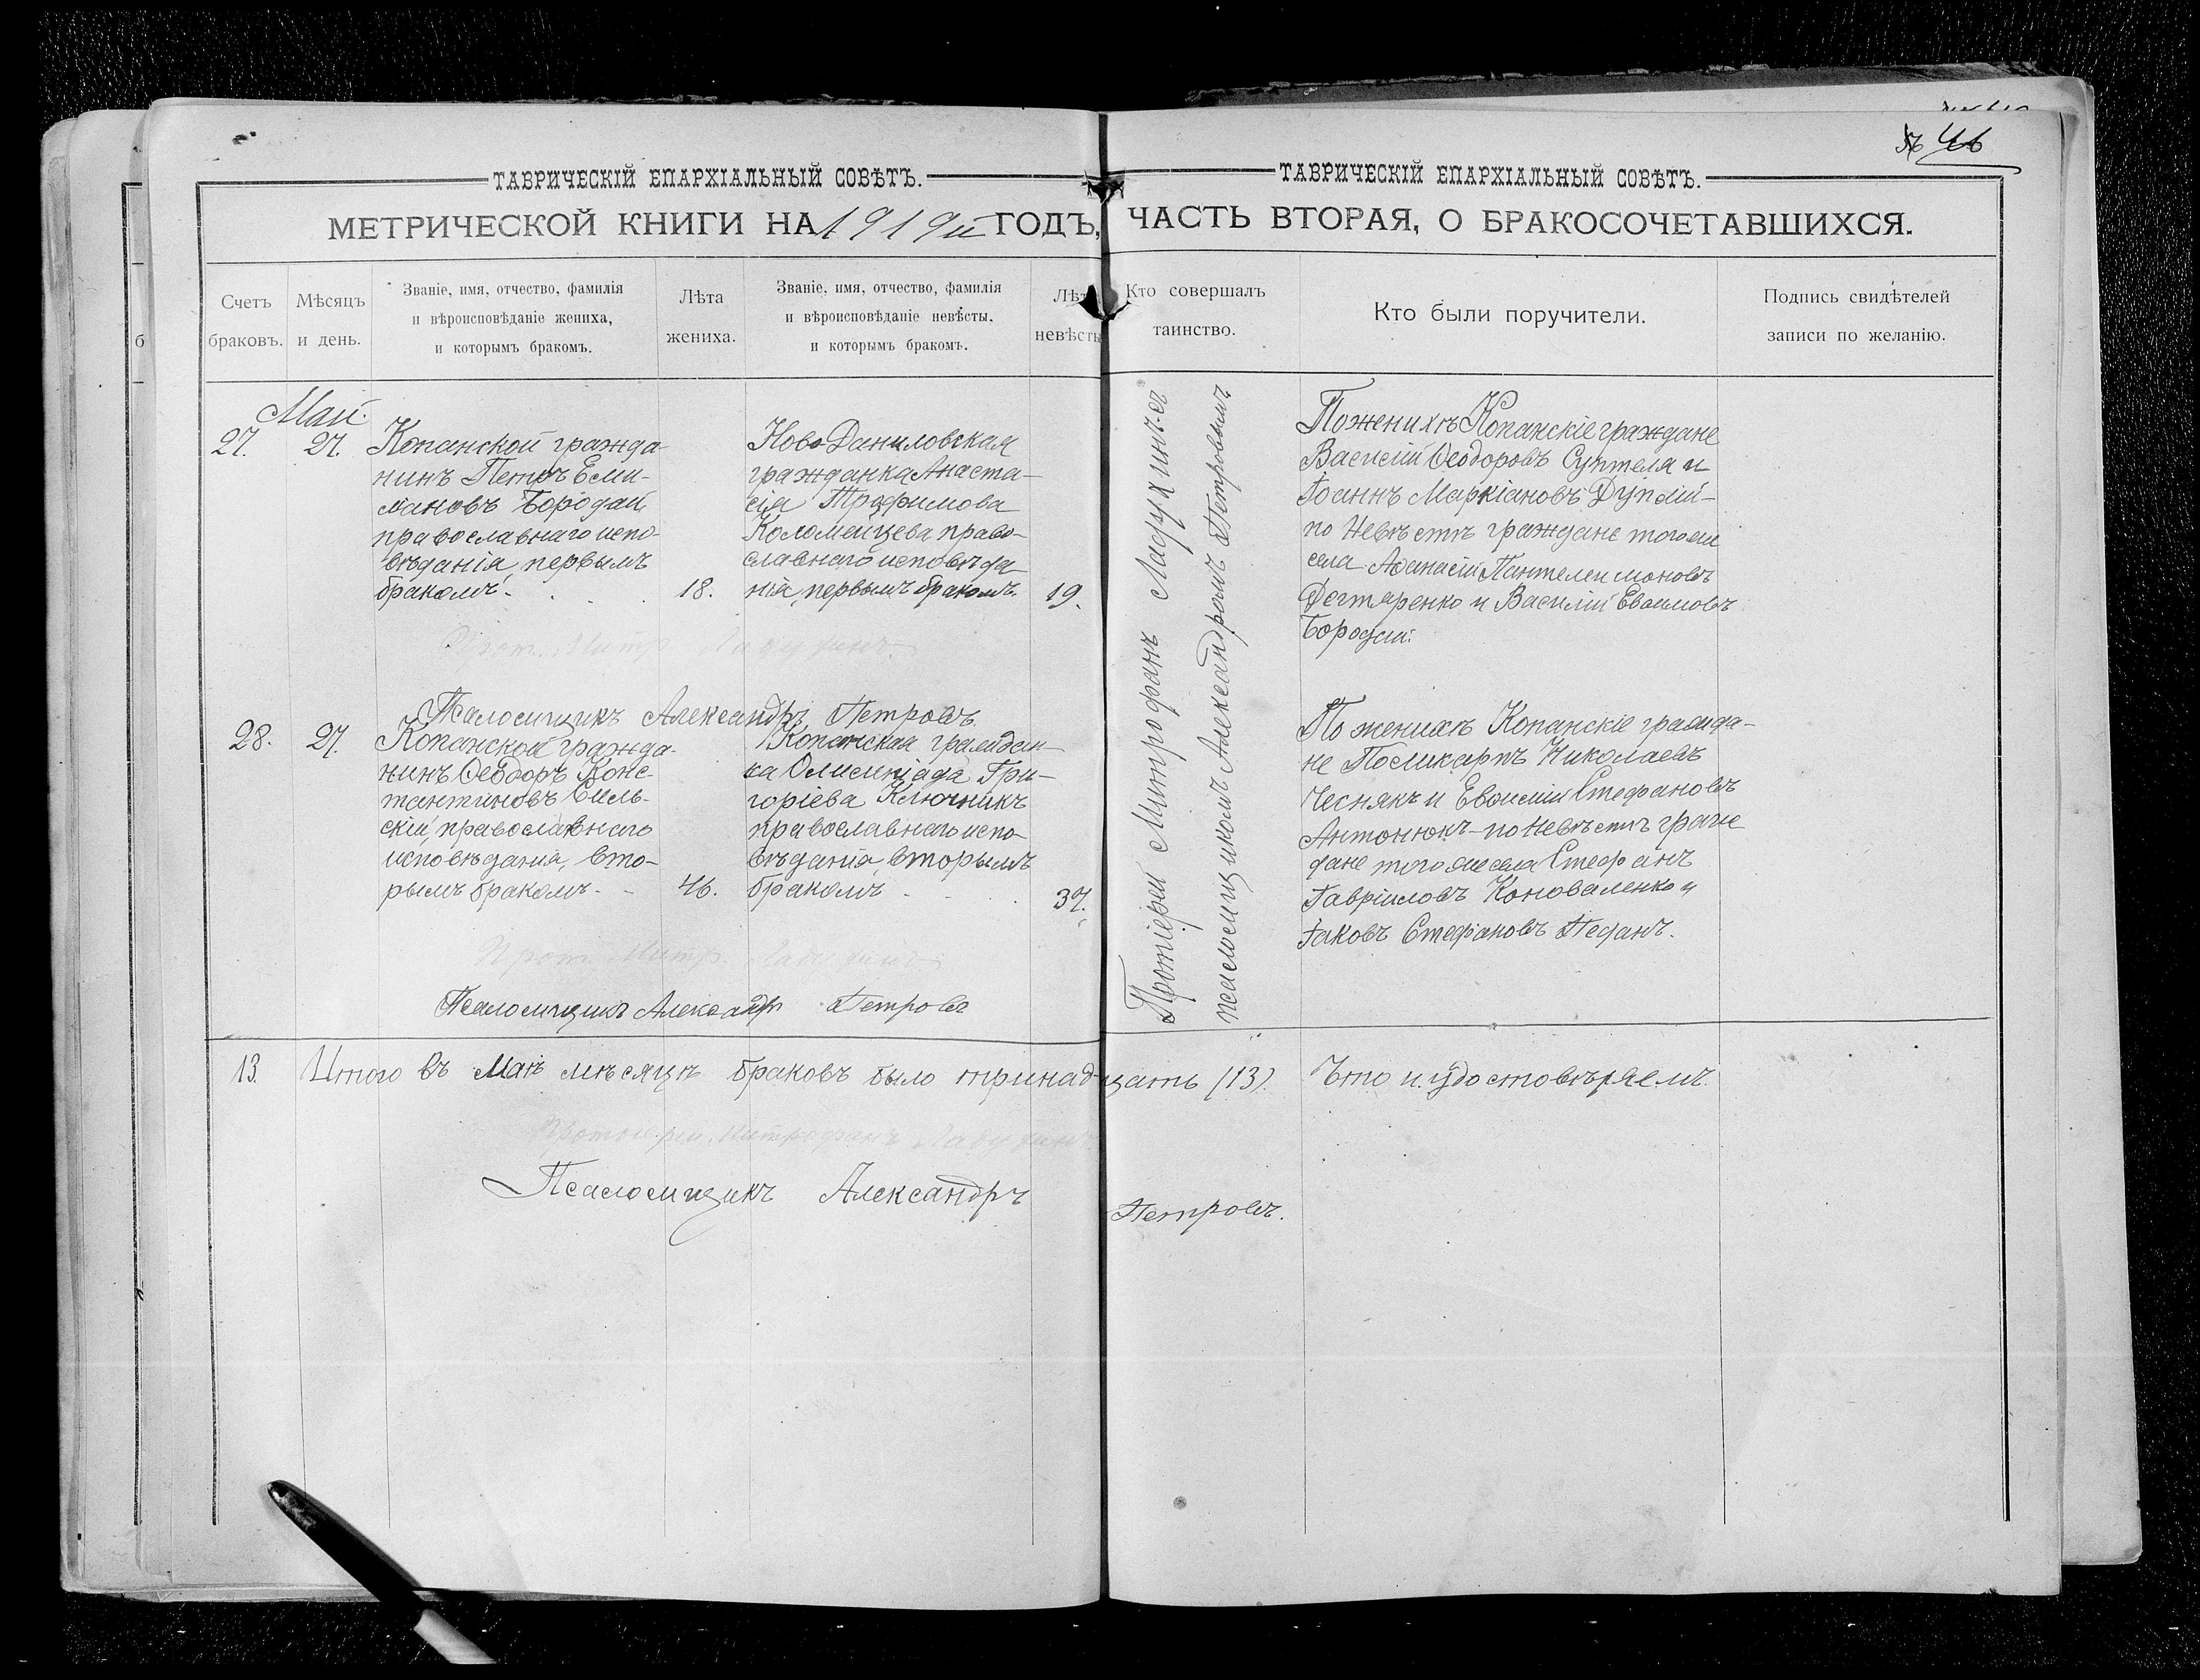 № 46
ТАВРИЧЕСКІЙ ЕПАРХІАЛЬНЫЙ СОВѢТЪ.
ТАВРИЧЕСКІЙ ЕПАРХІАЛЬНЫЙ СОВѢТЪ.
МЕТРИЧЕСКОЙ КНИГИ НА 1919й ГОДЪ, ЧАСТЬ ВТОРАЯ, О БРАКОСОЧЕТАВШИХСЯ.
Счетъ
браковъ.
Мѣсяцъ
и день.
Званіе, имя, отчество, фамилія
и вѣроисповѣданіе жениха,
и которымъ бракомъ.
Лѣта
жениха.
Званіе, имя, отчество, фамилія
и вѣроисповѣданіе невѣсты,
и которымъ бракомъ.
Лѣт
невѣсты
Кто совершалъ
таинство.
Кто были поручители.
Подпись свидѣтелей
записи по желанію.
Май.
27.
27.
Копанской гражда-
нинъ Петръ Еми-
ліановъ Бородай,
православнаго испо-
вѣданія, первымъ
бракомъ.
18.
Ново Даниловская
гражданка Анаста-
сія Трофимова
Коломойцева право-
славнаго исповѣда
нія, первымъ бракомъ.
19.
Протіерей Митрофанъ
псаломщикомъ Александромъ Петровымъ
По женихѣ Копанскіе граждане
Василій Ѳеодоровъ Суптеля и
Іоаннъ Маркіановъ
по невѣстѣ граждане того же
села Аѳанасій Пантелеимоновъ
Дегтяренко и Василій Евѳимовъ
Бородай.
Псаломщикъ Александръ Петровъ
28.
27.
Копанской гражда-
нинъ Ѳеодоръ Конс-
тантиновъ
скій, православнаго
исповѣданія, вто-
рымъ бракомъ.
46.
Копанская граждан-
ка Олимпіада Гри-
горіева Ключникъ
православнаго испо-
вѣданія, вторымъ
бракомъ
37.
По женихѣ Копанскіе гражда-
не Поликарпъ Николаевъ
Чеснякъ и Евѳимій Стефановъ
Антонюкъ - по невѣстѣ граж
дане того же села Стефанъ
Гавріиловъ Коноваленко и
Іаковъ Стефановъ Педанъ.
Псаломщикъ Александръ Петровъ
13.
Итого въ Маѣ мѣсяцѣ браковъ было тринадцать (13). Что и удостовѣряемъ.
Псаломщикъ Александръ Петровъ.